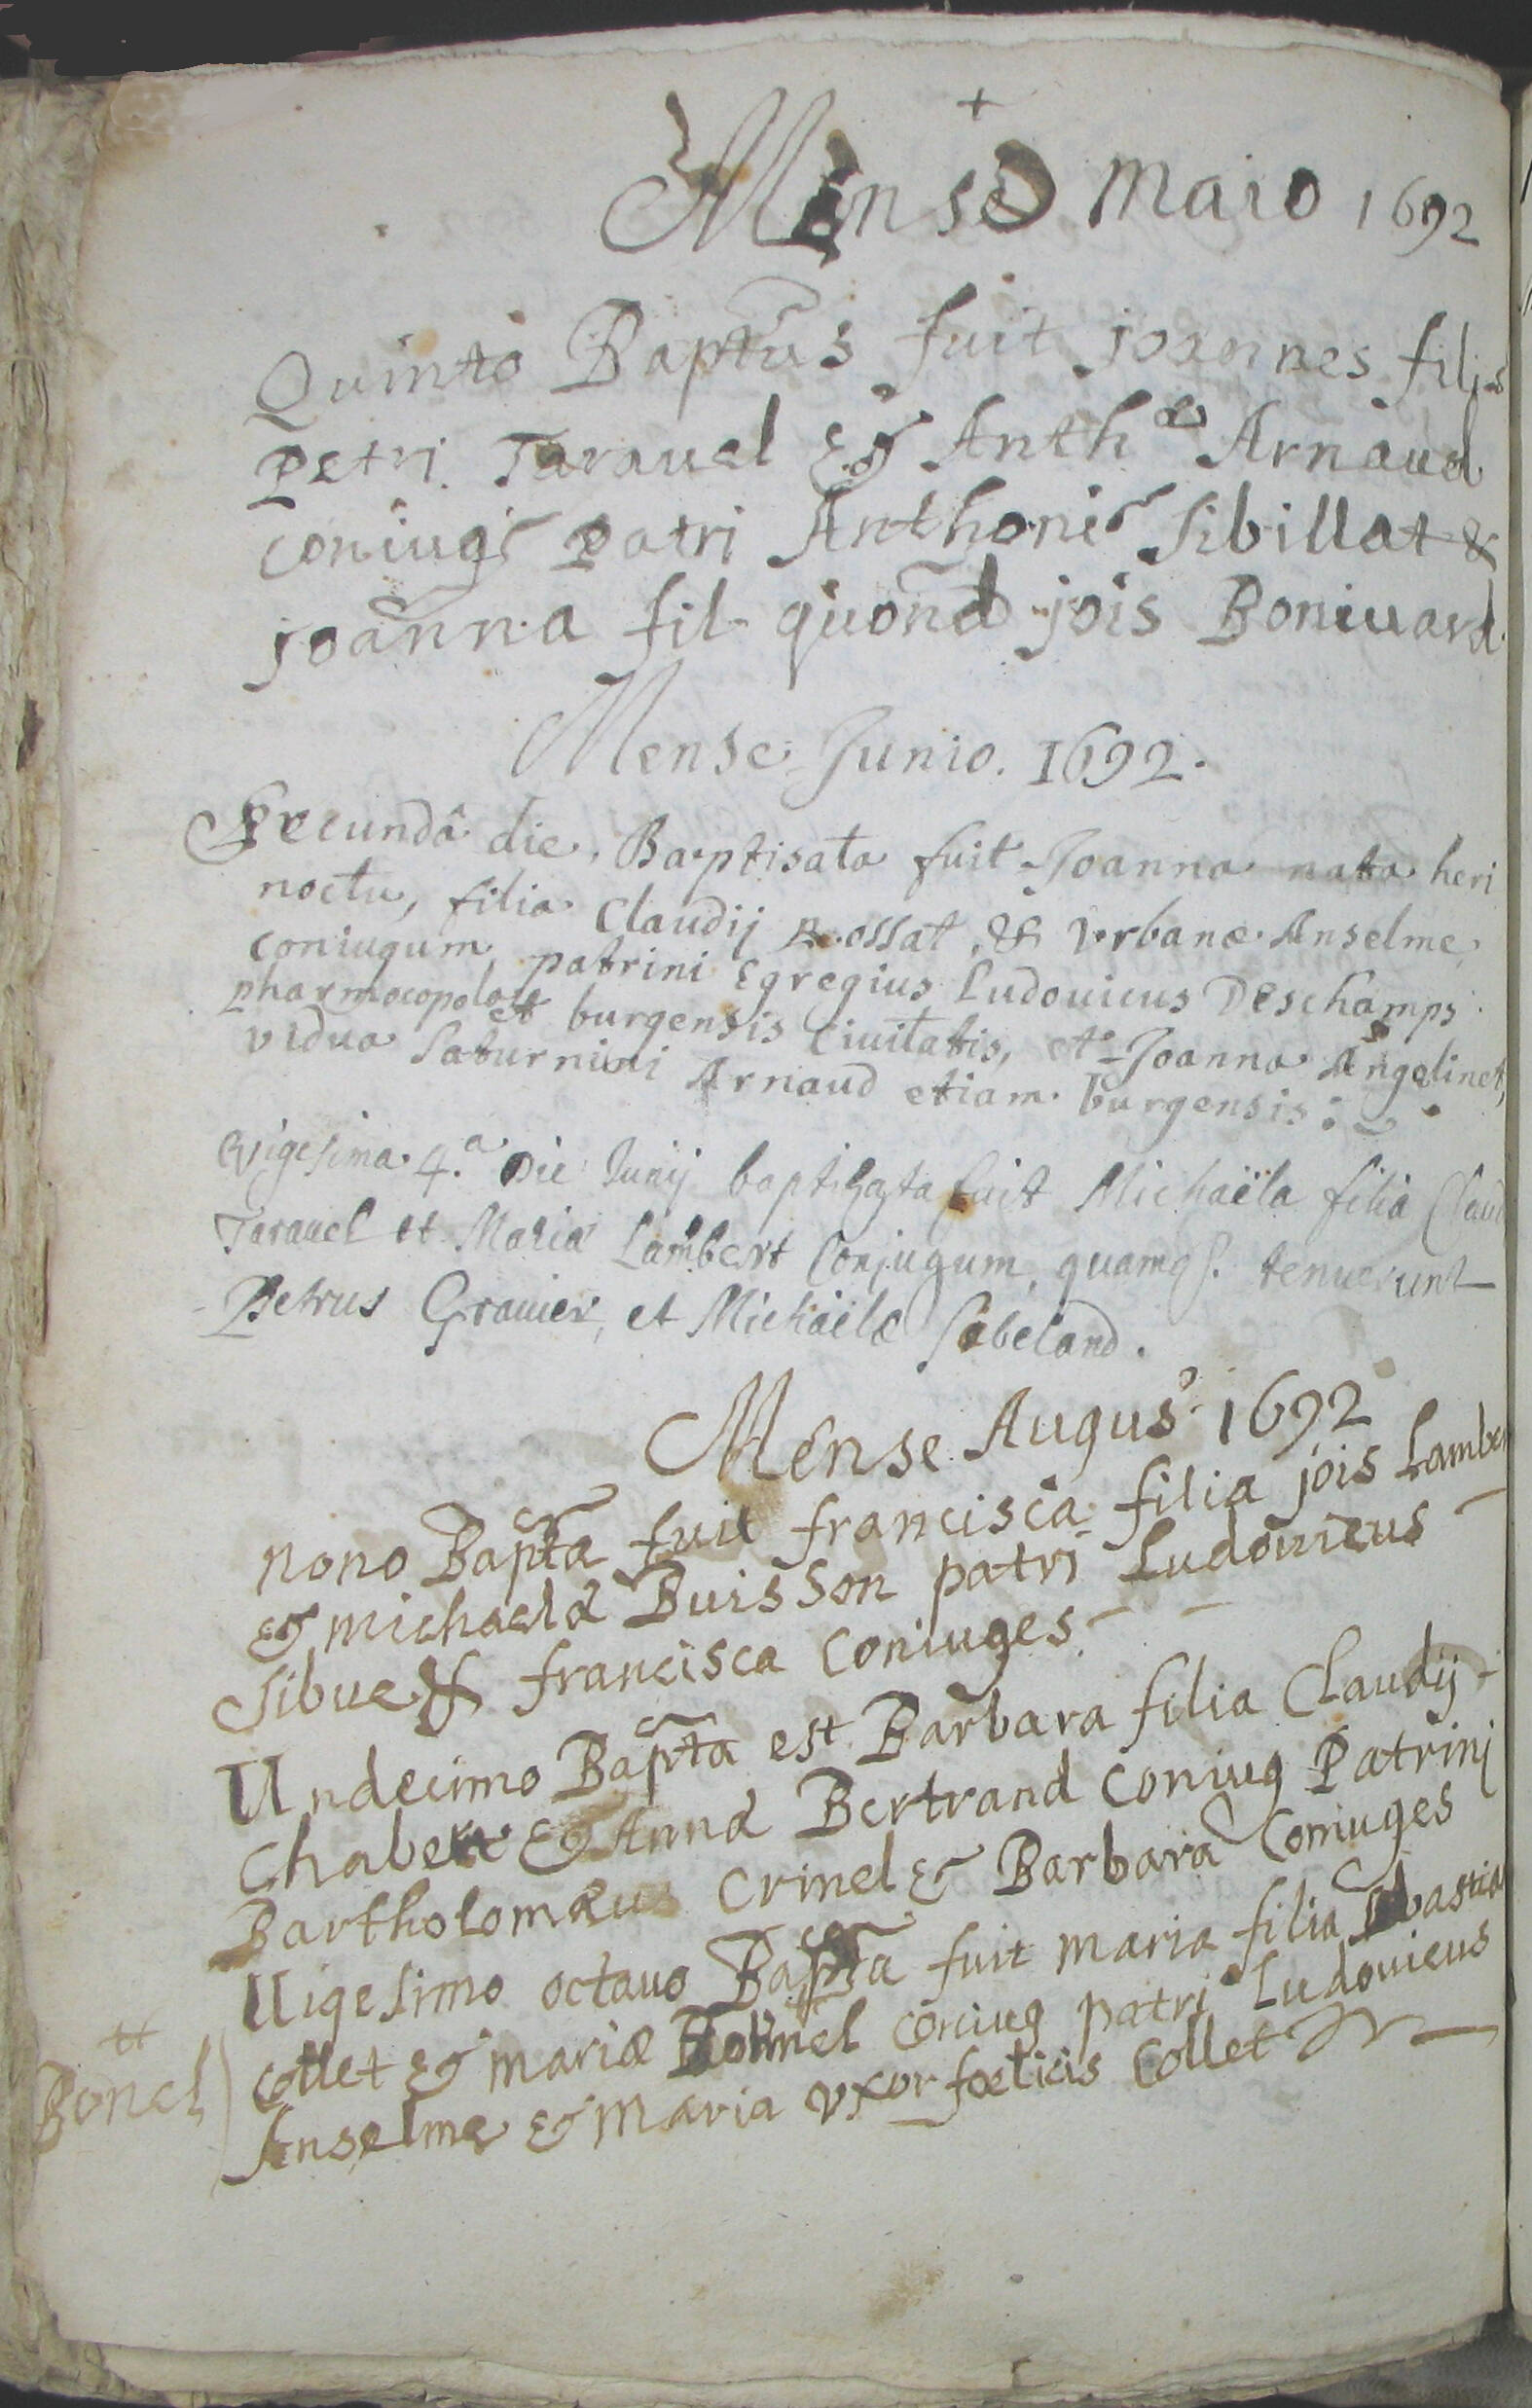 +
Mense Maio 1692
Quinto Baptus fuit joannes filis
petri Tarauel & Anthæ Arnaud
coniug patri Anthoni Sibillat &
joanna fil quond jois Boniuard.
Mense Junio. 1692.
Secundâ die, Baptisata fuit Joanna nata heri
noctu, filia Claudij Rossat, & Vrbanæ Anselme
coniugum, patrini Egregius Ludouicus Deschamps
pharmocopola et burgensis Ciuitatis, et Joanna Angelinet,
vidua Saturnini Arnaud etiam burgensis:
Vigesima 4.a Die Junij baptizata fuit Michaëla filia Claud
Tarauel et Mariæ Lambert Conjugum, quamq. tenuerunt
Petrus Grauier, et Michaëla Sabeland.
Mense Augus 1692
nono Bapta fuit francisca filia jois Lamber
& michaelæ Buisson patri Ludouicus
Sibue & francisca Coniuges
Undecimo Bapta est Barbara filia Claudij
Chabert & Annæ Bertrand Coniug Patrinj
Bartholomæus Crinel & Barbara Coniuges
Uigesimo octauo Bapta fuit maria filia Sebastia
Collet & mariæ coniug patri Ludouicus
Bonel)
Anselme & Maria vxor foelicis Collet